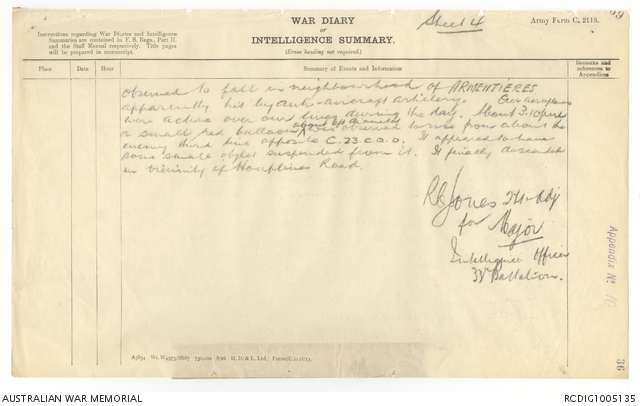 WAR DIARY
OF
INTELLIGENCE SUMMARY.
(Erase heading not required.)
Sheet 4
Army Form C. 2118.
Instructions regarding War Diaries and Intelligence
Summaries are contained in F. S. Regs., Part II.
and the Staff Manual respectively. Title pages
will be prepared in manuscript.
Place
Date
Hour
Summary of Events and Information
Remarks and
references to
Appendices
observed to fall in neighbourhood of ARMENTIERES
apparently hit by anti-aircraft artillery. Our aeroplanes
were active over our lines during the day. About 3.10 pm
a small red balloon was observed to rise from about the
enemy third line opposite C.23. It appeared to have
some small object suspended from it. It finally descended
in vicinity of Houplines Road.
Jones
for Major
Intelligence Officer
Battalion.
Appendix No.
36
AUSTRALIAN WAR MEMORIAL
RCDIG1005135